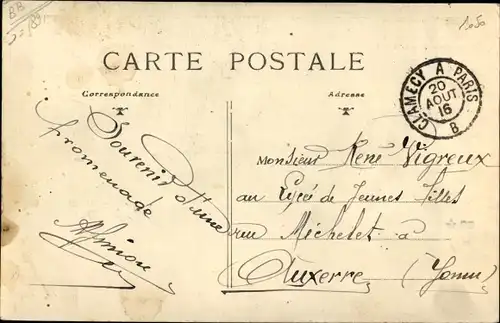 CARTE POSTALE
Correspondance
Adresse
CLAMECY A PARIS
20
AOUT
16
B
Souvenir d'une
promenade
Monsieur René Vigreux
au Lycée de Jeunes filles
rue Michelet a
Auxerre (Yonne)